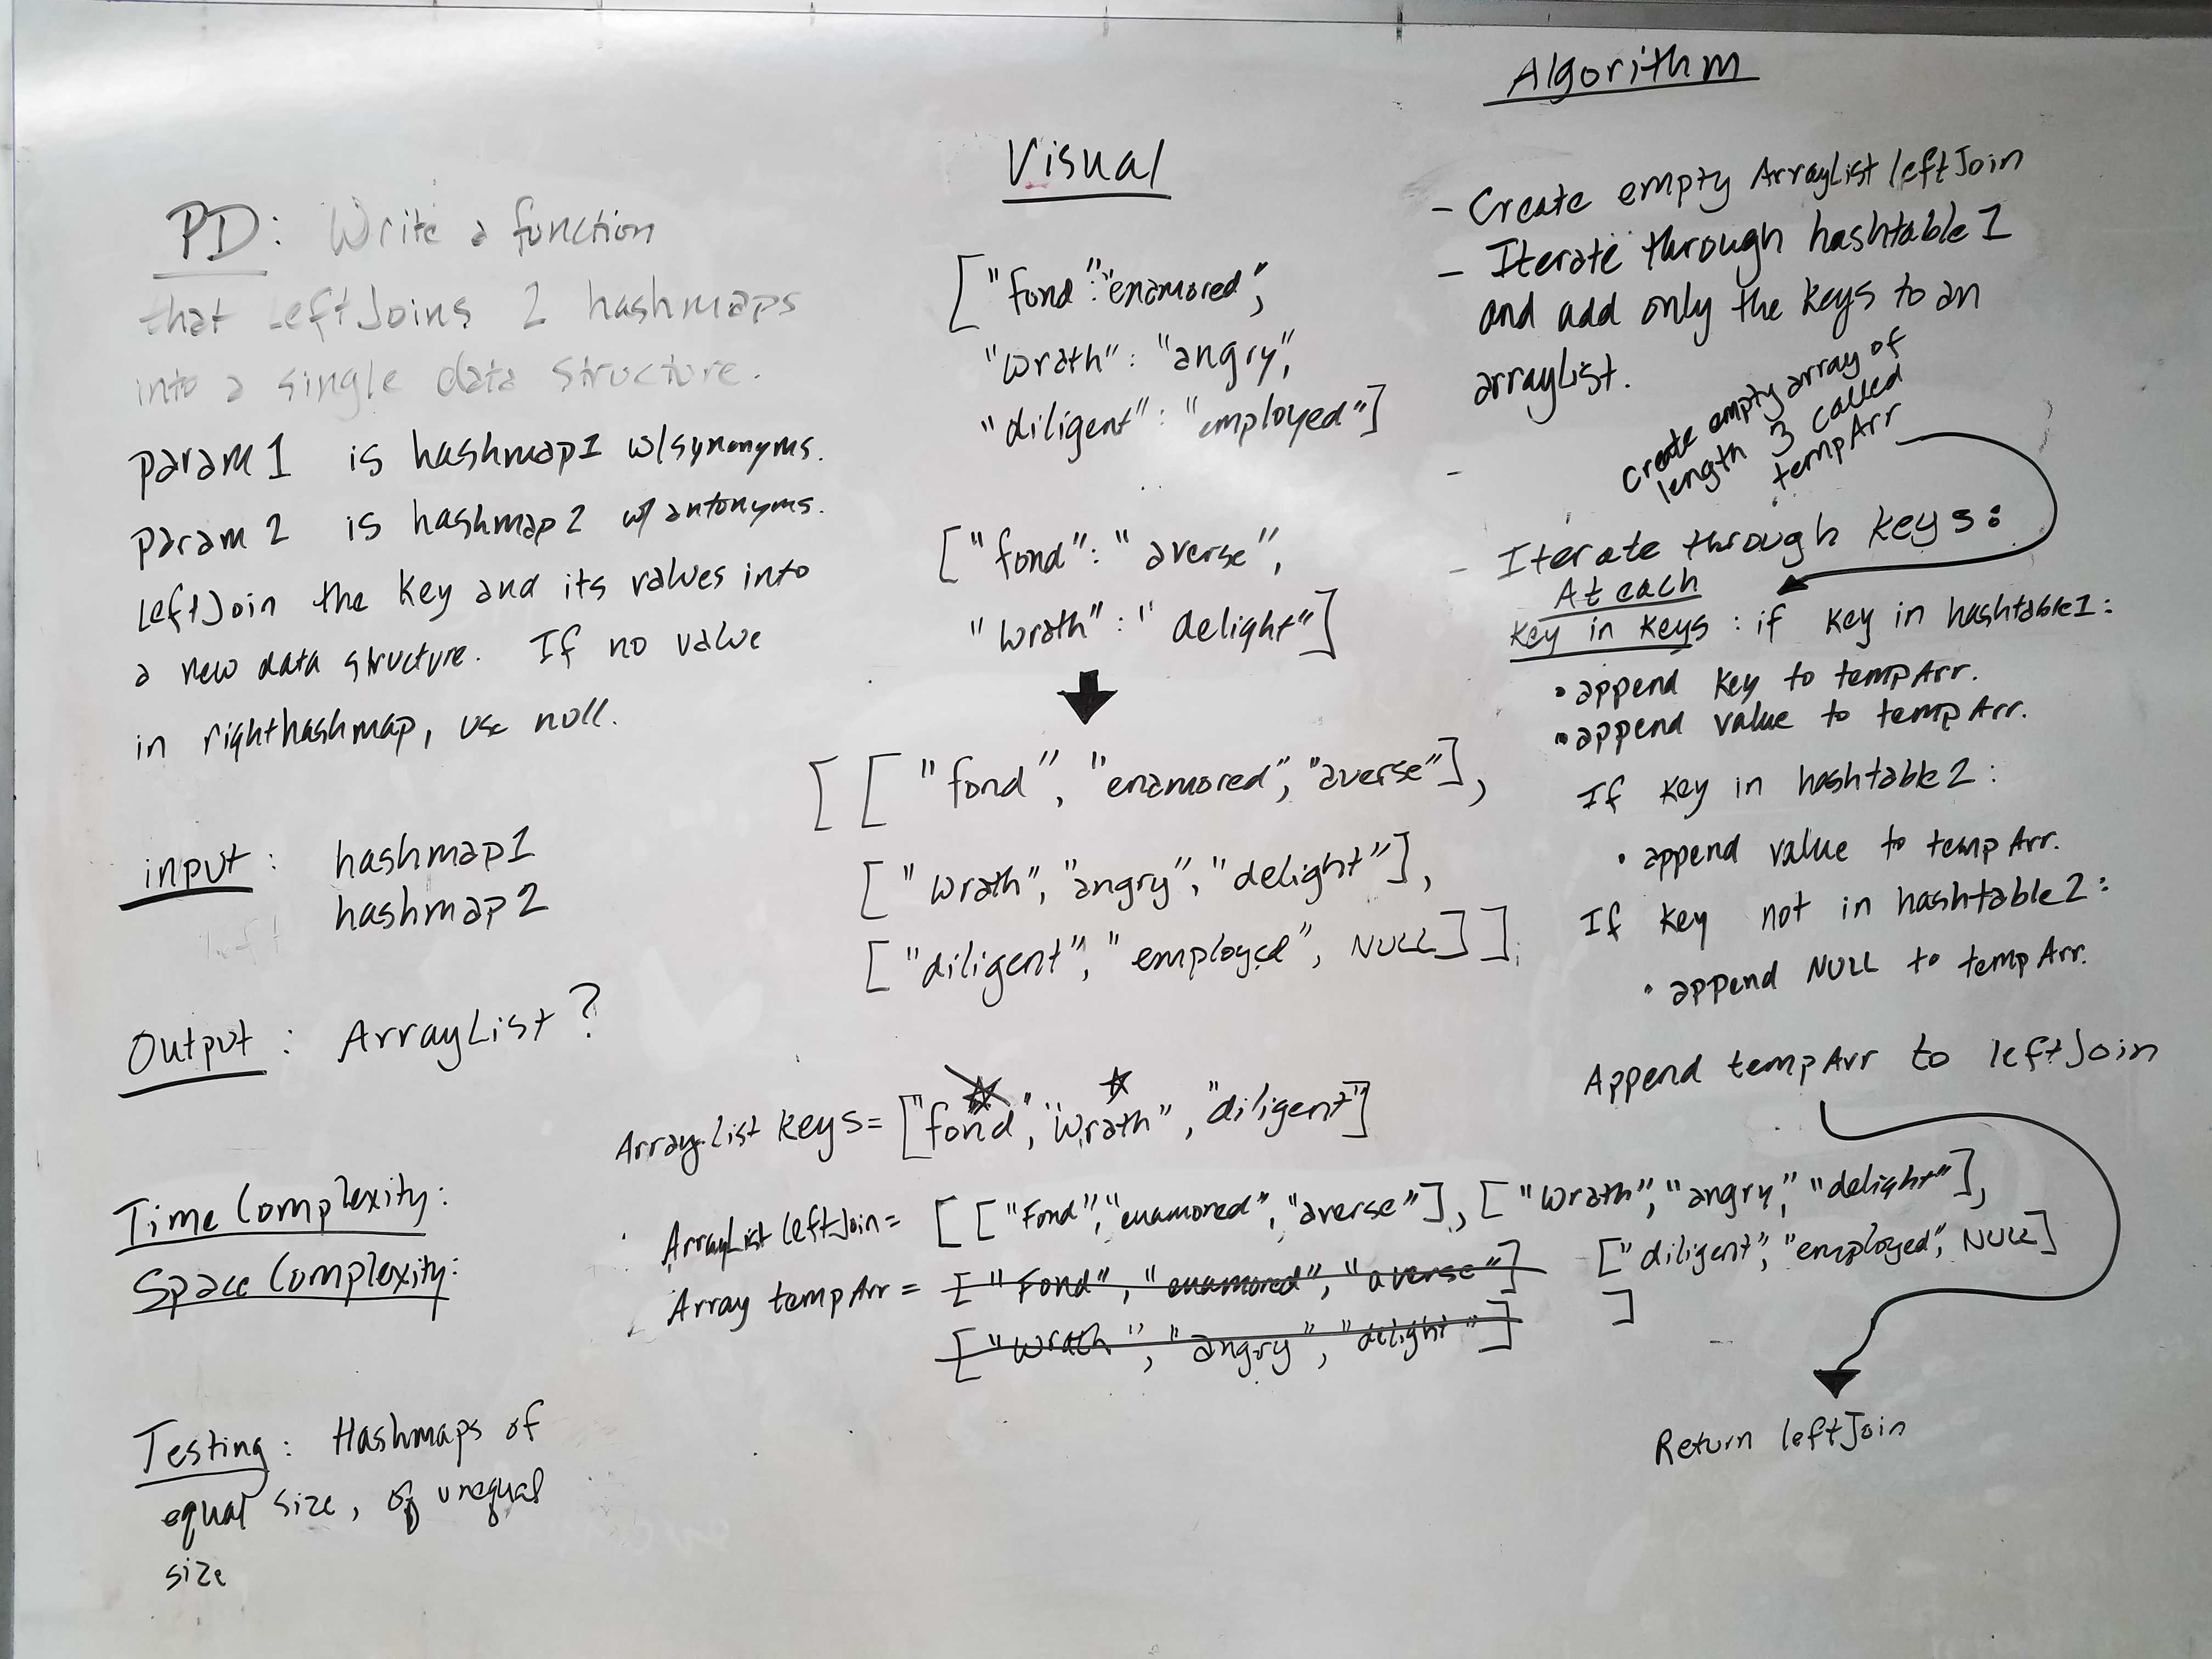 PD: Write a function
that LeftJoins 2 hashmaps
into a single data structure.
param 1 is hashmap1 w/synonyms.
param 2 is hashmap2 w/ antonyms.
LeftJoin the key and its values into
a new data structure. If no value
in righthashmap, use null.
input: hashmap1
hashmap2
left
Output: ArrayList?
Time Complexity:
Space Complexity:
Testing: Hashmaps of
equal size, of unequal
size
Visual
["fond":"enamored",
"wrath": "angry",
"diligent": "employed"]
["fond": "averse",
"wrath": "delight"]
[["fond", "enamored", "averse"],
["wrath", "angry", "delight"],
["diligent", "employed", NULL]]
ArrayList keys= ["fond", "wrath", "diligent"]
ArrayList leftJoin= [["Fond", "enamored", "averse"], ["wrath", "angry", "delight"],
["diligent", "employed", NULL]
]
Array tempArr = ["Fond", "enamored", "averse"]
["wrath", "angry", "delight"]
Algorithm
- Create empty ArrayList leftJoin
- Iterate through hashtable1
and add only the keys to an
arrayList.
create empty array of
length 3 called
tempArr
-
- Iterate through keys:
At each
key in keys: if key in hashtable1:
• append key to tempArr.
• append value to tempArr.
If key in hashtable2:
• append value to tempArr.
If key not in hashtable2:
• append NULL to tempArr.
Append tempArr to leftJoin
Return leftJoin